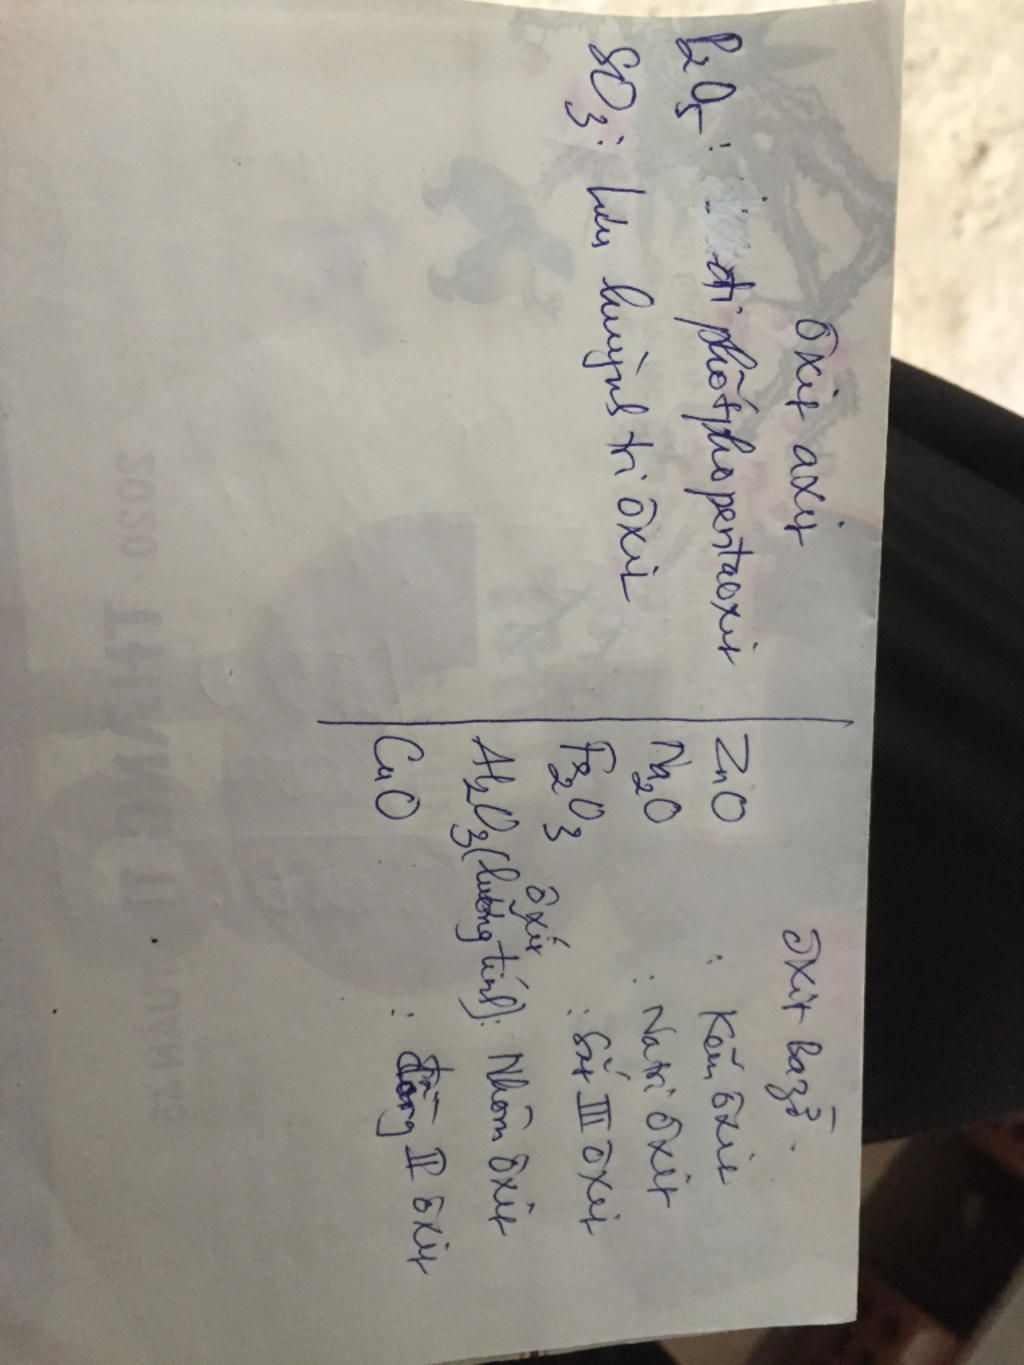 ôxit axit
P2O5 : đi phốtphopentaoxit
SO3 : lưu huỳnh tri ôxit
ôxit bazơ.
ZnO : Kẽm ôxit
Na2O : Natri ôxit
Fe2O3 : Sắt III ôxit
ôxit
Al2O3 (lưỡng tính): Nhôm ôxit
CuO : Đồng II ôxit
2020 · THÁNG 11 TUẦN 45